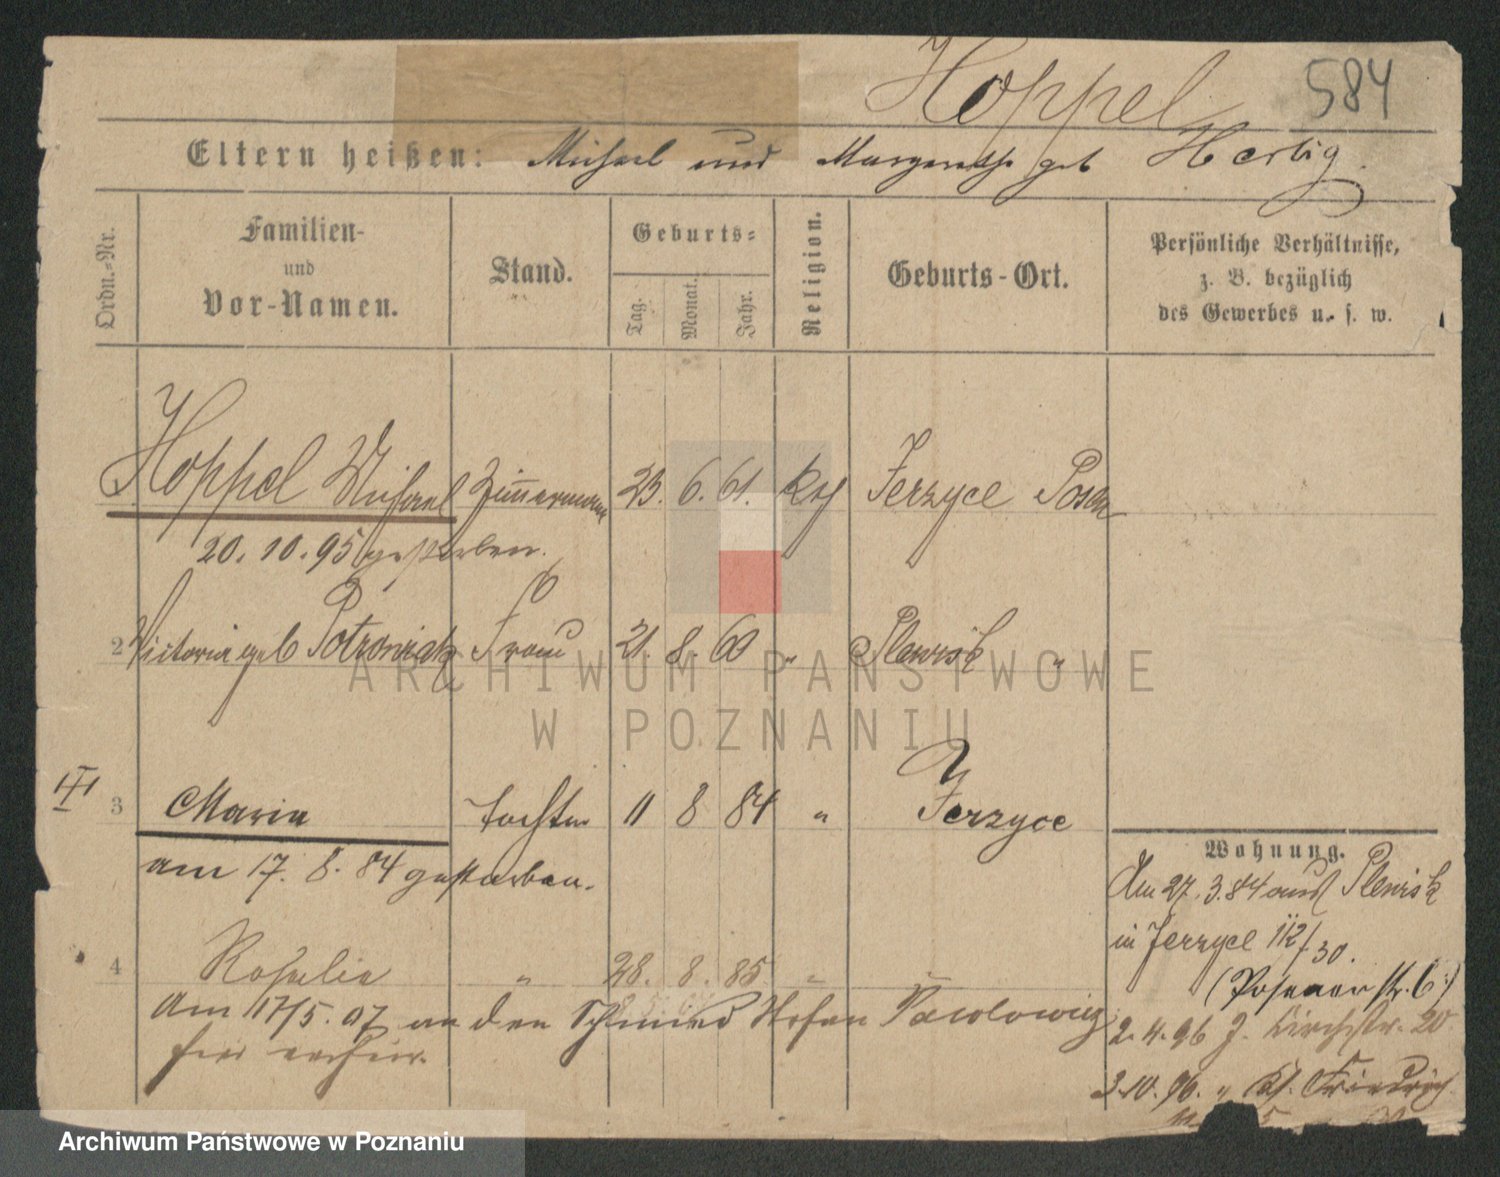 Hoppel 584
Eltern heißen: Michael und Margarethe geb Hertig
Ordn.-Nr.
Familien-
und
Vor-Namen.
Stand.
Geburts-
Tag.
Monat.
Jahr.
Religion.
Geburts-Ort.
Persönliche Verhältnisse,
z. B. bezüglich
des Gewerbes u. s. w.
Hoppel Michael Zimmermann 23. 6. 61. kth Jerzyce Posen
20. 10. 95 gestorben.
2 Victoria geb Potroniak Frau 21. 8. 60 " Plewisk "
ARCHIWUM PAŃSTWOWE
W POZNANIU
III 3 Maria Tochter 11 8 84 " Jerzyce
am 17. 8. 84 gestorben.
Wohnung.
Am 27. 3. 84 aus Plewisk
in Jerzyce 112/30.
(Posener str. 6.)
4 Rosalie " 28. 8. 85 "
Am 17/5. 07 an den Schmied Stefan Pawlowicz
hier verheir.
2. 4. 96 J. Kirchstr. 20
3. 10. 96. " Kl. Friedrich
Archiwum Państwowe w Poznaniu